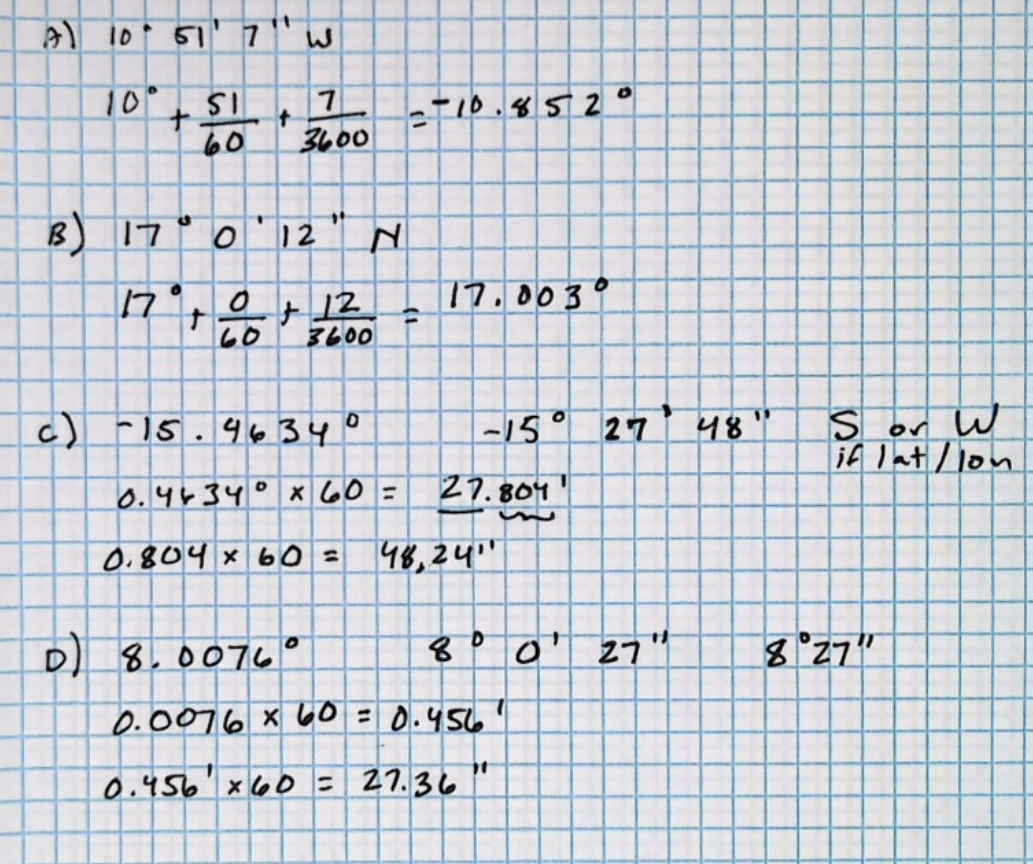 A) 10° 51' 7" W
10° + 51/60 + 7/3600 = -10.852°
B) 17° 0' 12" N
17° + 0/60 + 12/3600 = 17.003°
C) -15.4634° -15° 27' 48" S or W
if lat/lon
0.4634° × 60 = 27.804'
0.804 × 60 = 48,24"
D) 8.0076° 8° 0' 27" 8°27"
0.0076 × 60 = 0.456'
0.456' × 60 = 27.36"